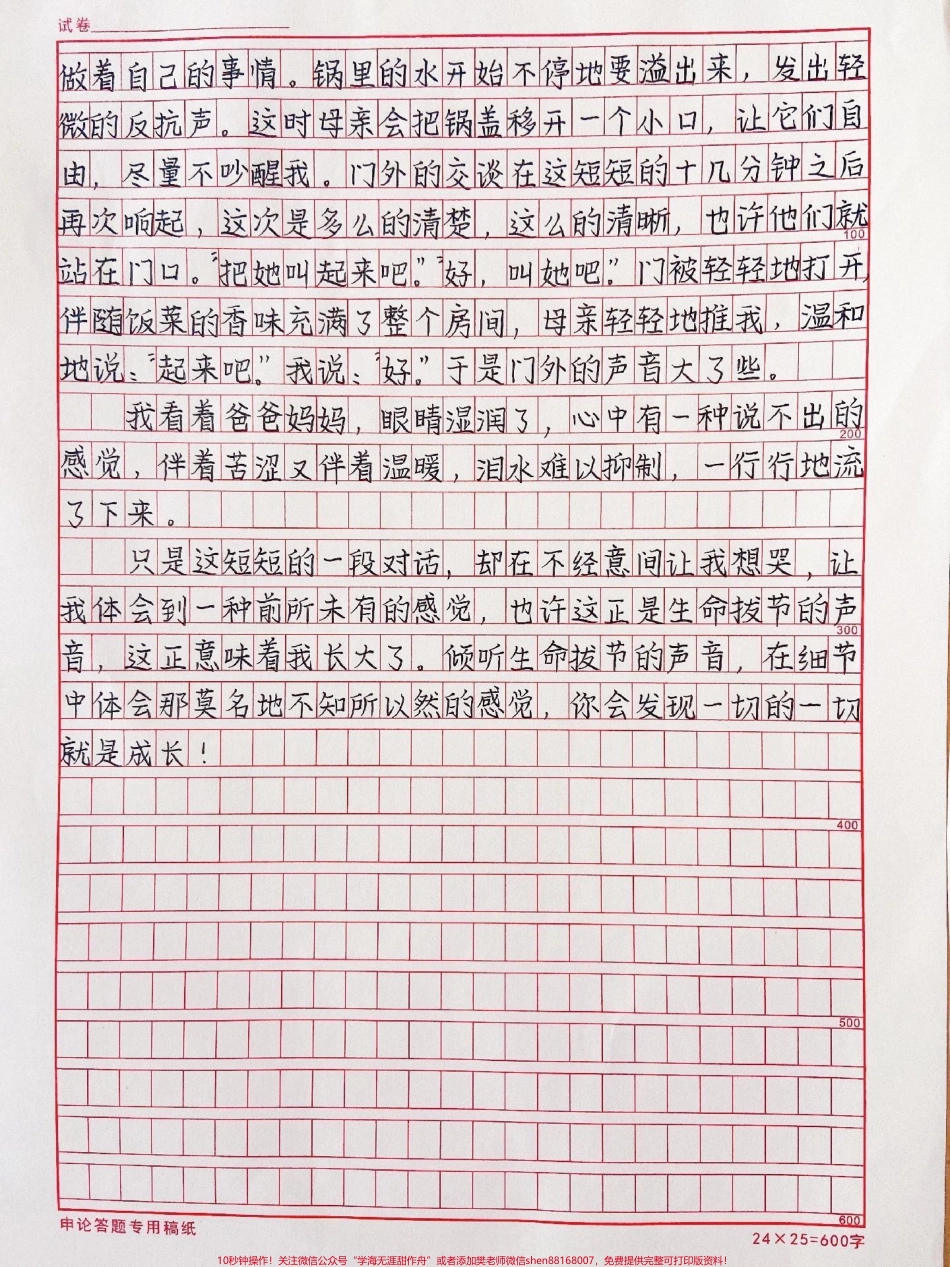 试卷
做着自己的事情。锅里的水开始不停地要溢出来，发出轻
微的反抗声。这时母亲会把锅盖移开一个小口，让它们自
由，尽量不吵醒我。门外的交谈在这短短的十几分钟之后
再次响起，这次是多么的清楚，这么的清晰，也许他们就
100
站在门口。“把她叫起来吧。”“好，叫她吧。”门被轻轻地打开，
伴随饭菜的香味充满了整个房间，母亲轻轻地推我，温和
地说：“起来吧。”我说：“好。”于是门外的声音大了些。
我看着爸爸妈妈，眼睛湿润了，心中有一种说不出的
200
感觉，伴着苦涩又伴着温暖，泪水难以抑制，一行行地流
了下来。
只是这短短的一段对话，却在不经意间让我想哭，让
我体会到一种前所未有的感觉，也许这正是生命拔节的声
300
音，这正意味着我长大了。倾听生命拔节的声音，在细节
中体会那莫名地不知所以然的感觉，你会发现一切的一切
就是成长！
400
500
600
申论答题专用稿纸
24×25=600字
10秒钟操作！关注微信公众号“学海无涯甜作舟”或者添加樊老师微信shen88168007，免费提供完整可打印版资料！